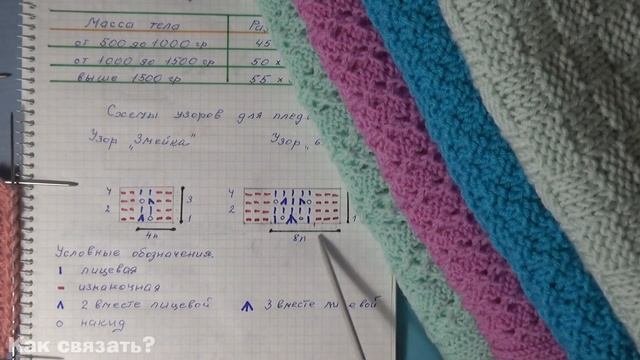 Масса тела Ра
от 500 до 1000 гр 45
от 1000 до 1500 гр 50 х
выше 1500 гр 55 х
Схемы узоров для плед
Узор „Змейка" Узор „
4 3
2 1
4п
4
2 1
8п
Условные обозначения.
лицевая
изнаночная
2 вместе лицевой 3 вместе лицевой
накид
Как связать?